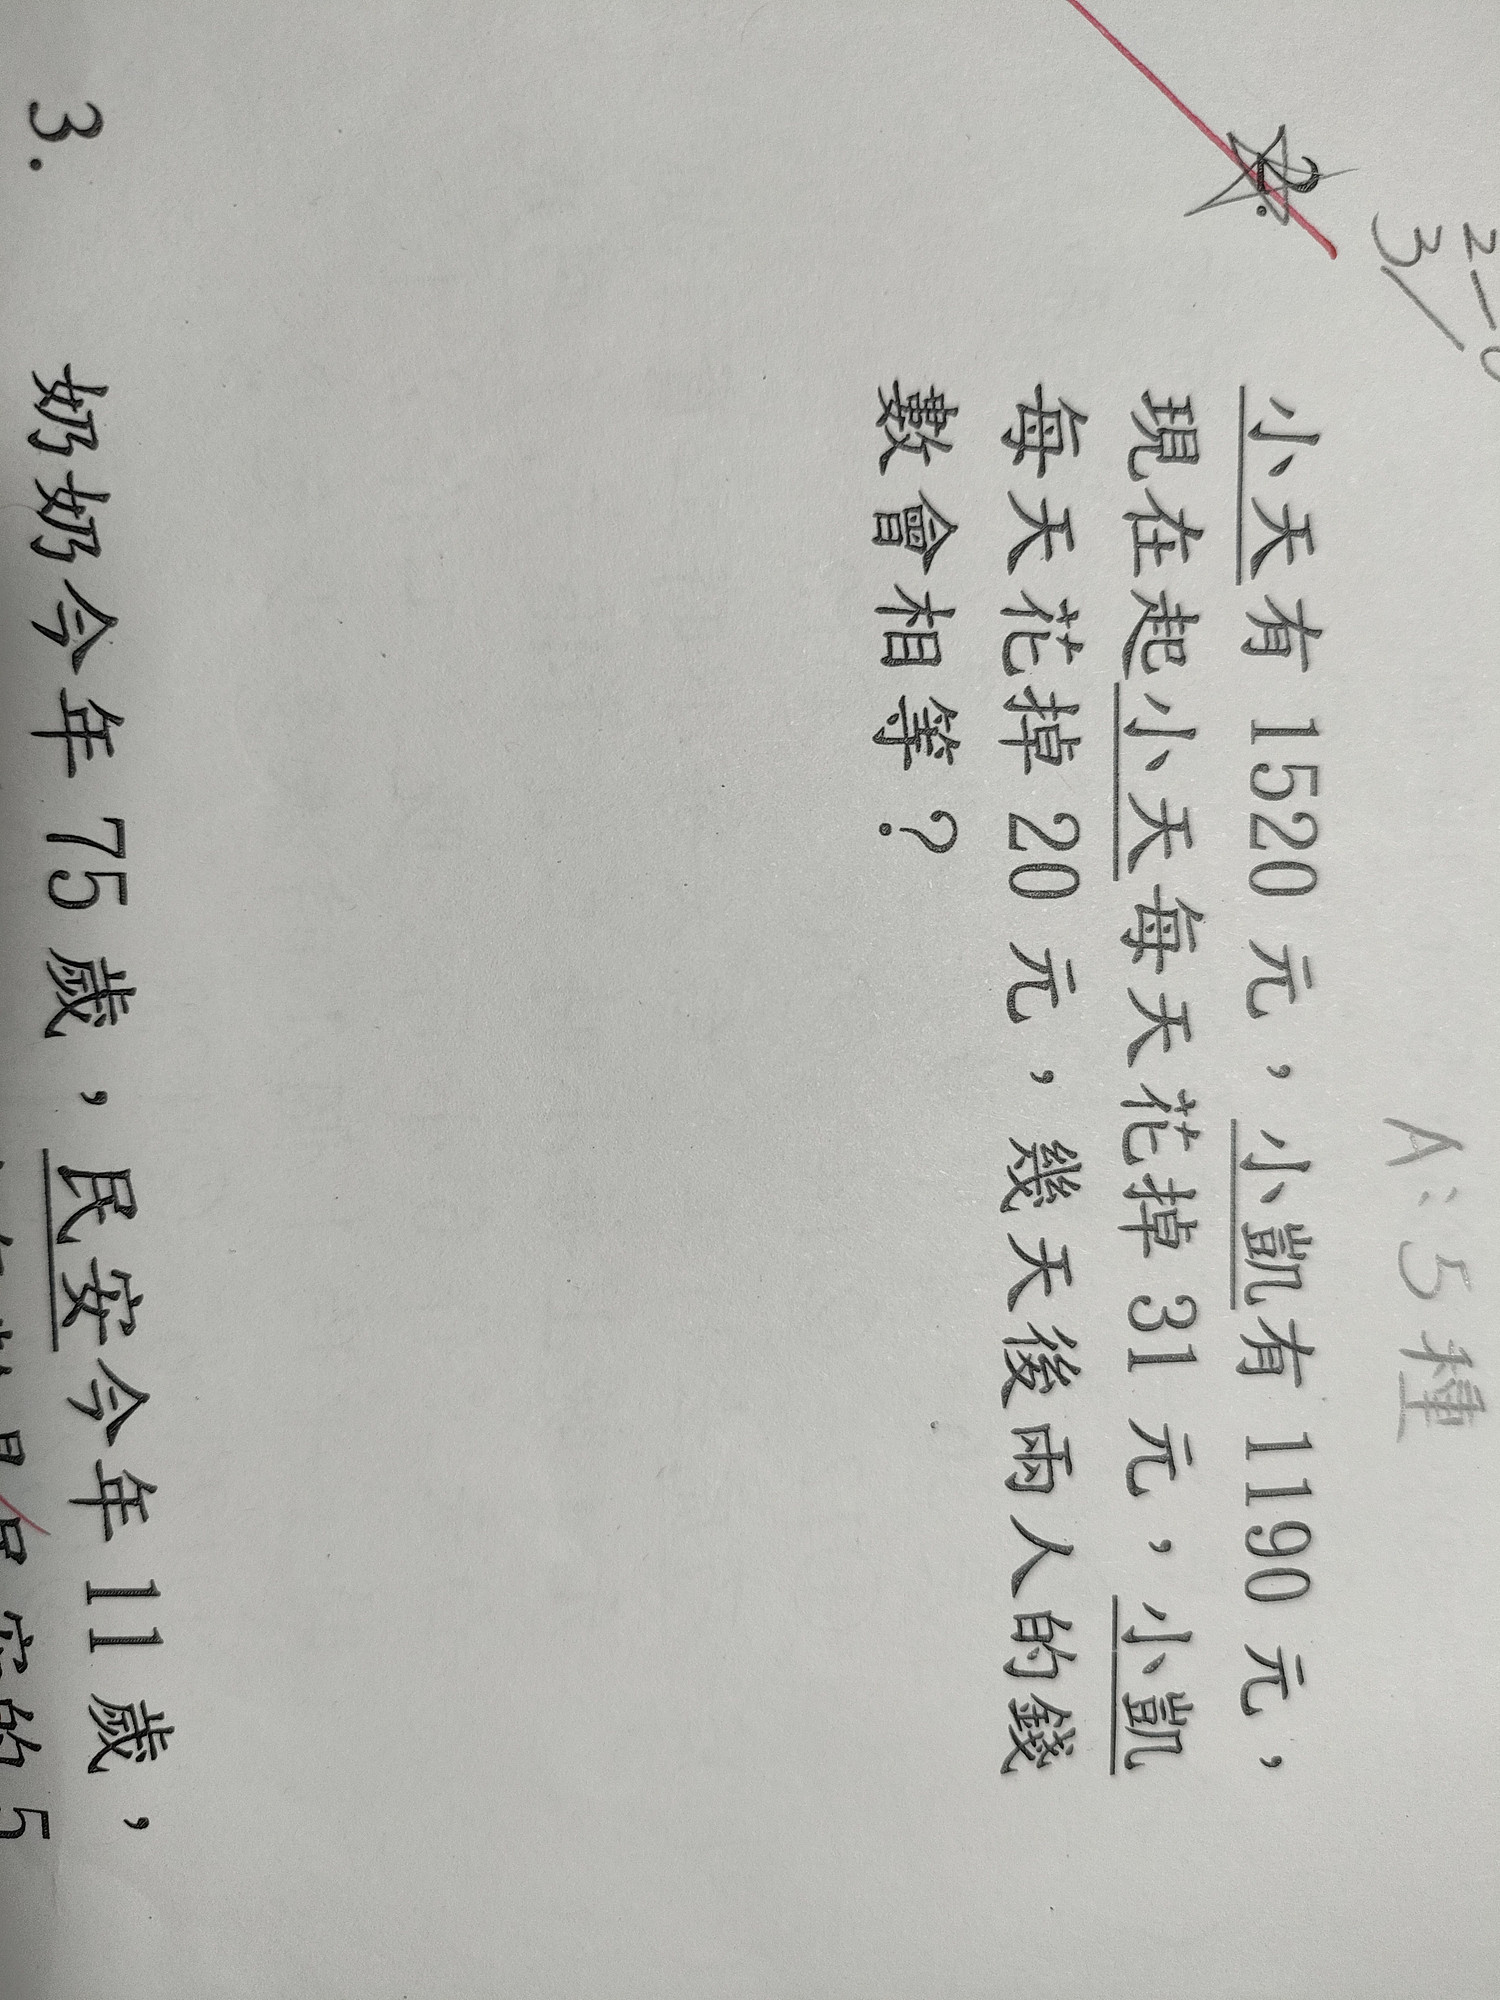 3
A：5種
2. 小天有 1520 元，小凱有 1190 元，
現在起小天每天花掉 31 元，小凱
每天花掉 20 元，幾天後兩人的錢
數會相等？
3. 奶奶今年 75 歲，民安今年 11 歲，